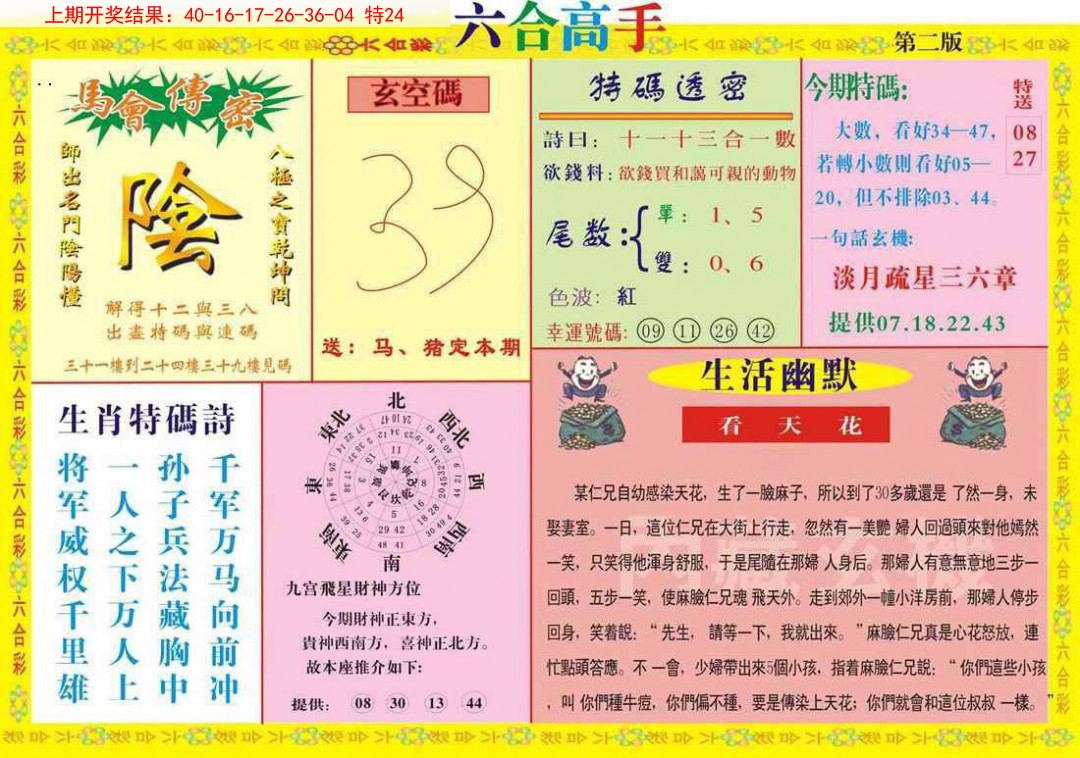 上期开奖结果：40-16-17-26-36-04 特24
六合高手
第二版
馬會傳密
師出名門陰陽懂
陰
八極之寶乾坤問
解得十二與三八
出盡特碼與連碼
三十一樓到二十四樓三十九樓見碼
玄空碼
送：马、猪定本期
特碼透密
詩曰：十一十三合一數
欲錢料：欲錢買和藹可親的動物
尾数：
單：1、5
雙：0、6
色波：紅
幸運號碼：09 11 26 42
今期特碼：
特送
08
27
大數，看好34—47，
若轉小數則看好05—
20，但不排除03、44。
一句話玄機：
淡月疏星三六章
提供07.18.22.43
生肖特碼詩
千军万马向前冲
孙子兵法藏胸中
一人之下万人上
将军威权千里雄
北
西北
西
西南
南
東南
東
東北
九宫飛星財神方位
今期財神正東方，
貴神西南方，喜神正北方。
故本座推介如下：
提供：08 30 13 44
生活幽默
看天花
某仁兄自幼感染天花，生了一臉麻子，所以到了30多歲還是 了然一身，未
娶妻室。一日，這位仁兄在大街上行走，忽然有一美艷 婦人回過頭來對他嫣然
一笑，只笑得他渾身舒服，于是尾隨在那婦 人身后。那婦人有意無意地三步一
回頭，五步一笑，使麻臉仁兄魂 飛天外。走到郊外一幢小洋房前，那婦人停步
回身，笑着説：“先生，請等一下，我就出來。”麻臉仁兄真是心花怒放，連
忙點頭答應。不 一會，少婦帶出來5個小孩，指着麻臉仁兄説：“你們這些小孩
，叫 你們種牛痘，你們偏不種，要是傳染上天花；你們就會和這位叔叔 一樣。”